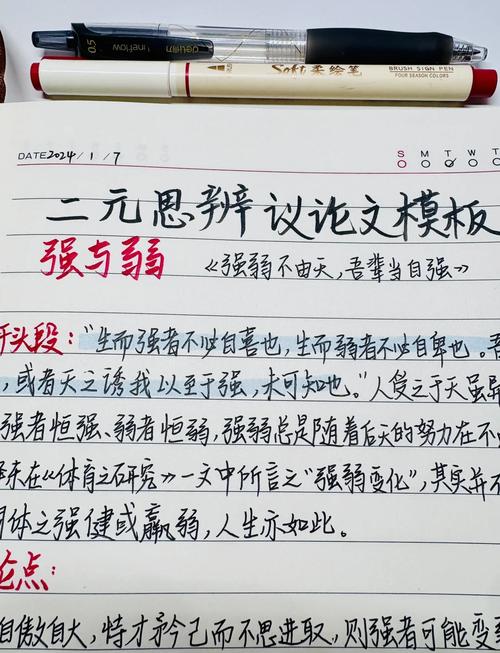 0.5 deli ineflow
Soft 柔绘笔 BRUSH SIGN PEN
FOUR SEASON COLORS
DATE 2024/1/7
S M T W T
二元思辨议论文模板
强与弱 《强弱不由天，吾辈当自强》
开头段："生而强者不必自喜也，生而弱者不必自卑也。吾
，或者天之诱我以至于强，未可知也。"人受之于天虽异
强者恒强、弱者恒弱，强弱总是随着后天的努力在不
泽东在《体育之研究》一文中所言之"强弱变化"，其实并不
体之强健或羸弱，人生亦如此。
论点：
自傲自大，恃才矜己而不思进取，则强者可能变弱